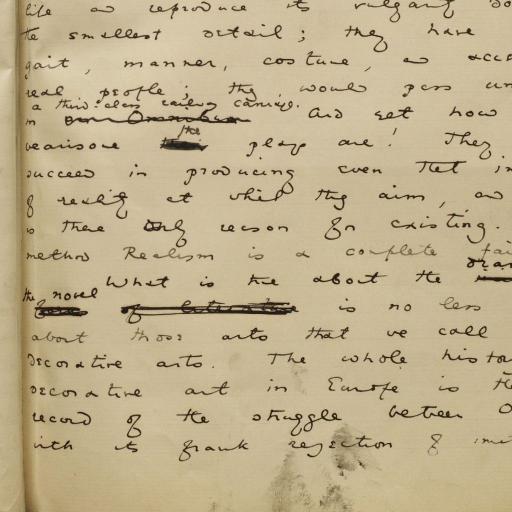 life and reproduce its vulgarity do
the smallest detail ; they have
gait , manner, costume , and acce
real people ; they would pass un
a third-class railway carriage.
in And yet how
the
wearisome plays are ! They
succeed in producing even that im
of reality at which they aim , and
is there only reason for existing.
method Realism is a complete fai
dram
What is true about the
the novel is no less
about those arts that we call
Decorative arts. The whole histor
decorative art in Europe is the
record of the struggle between O
with its frank rejection of imit